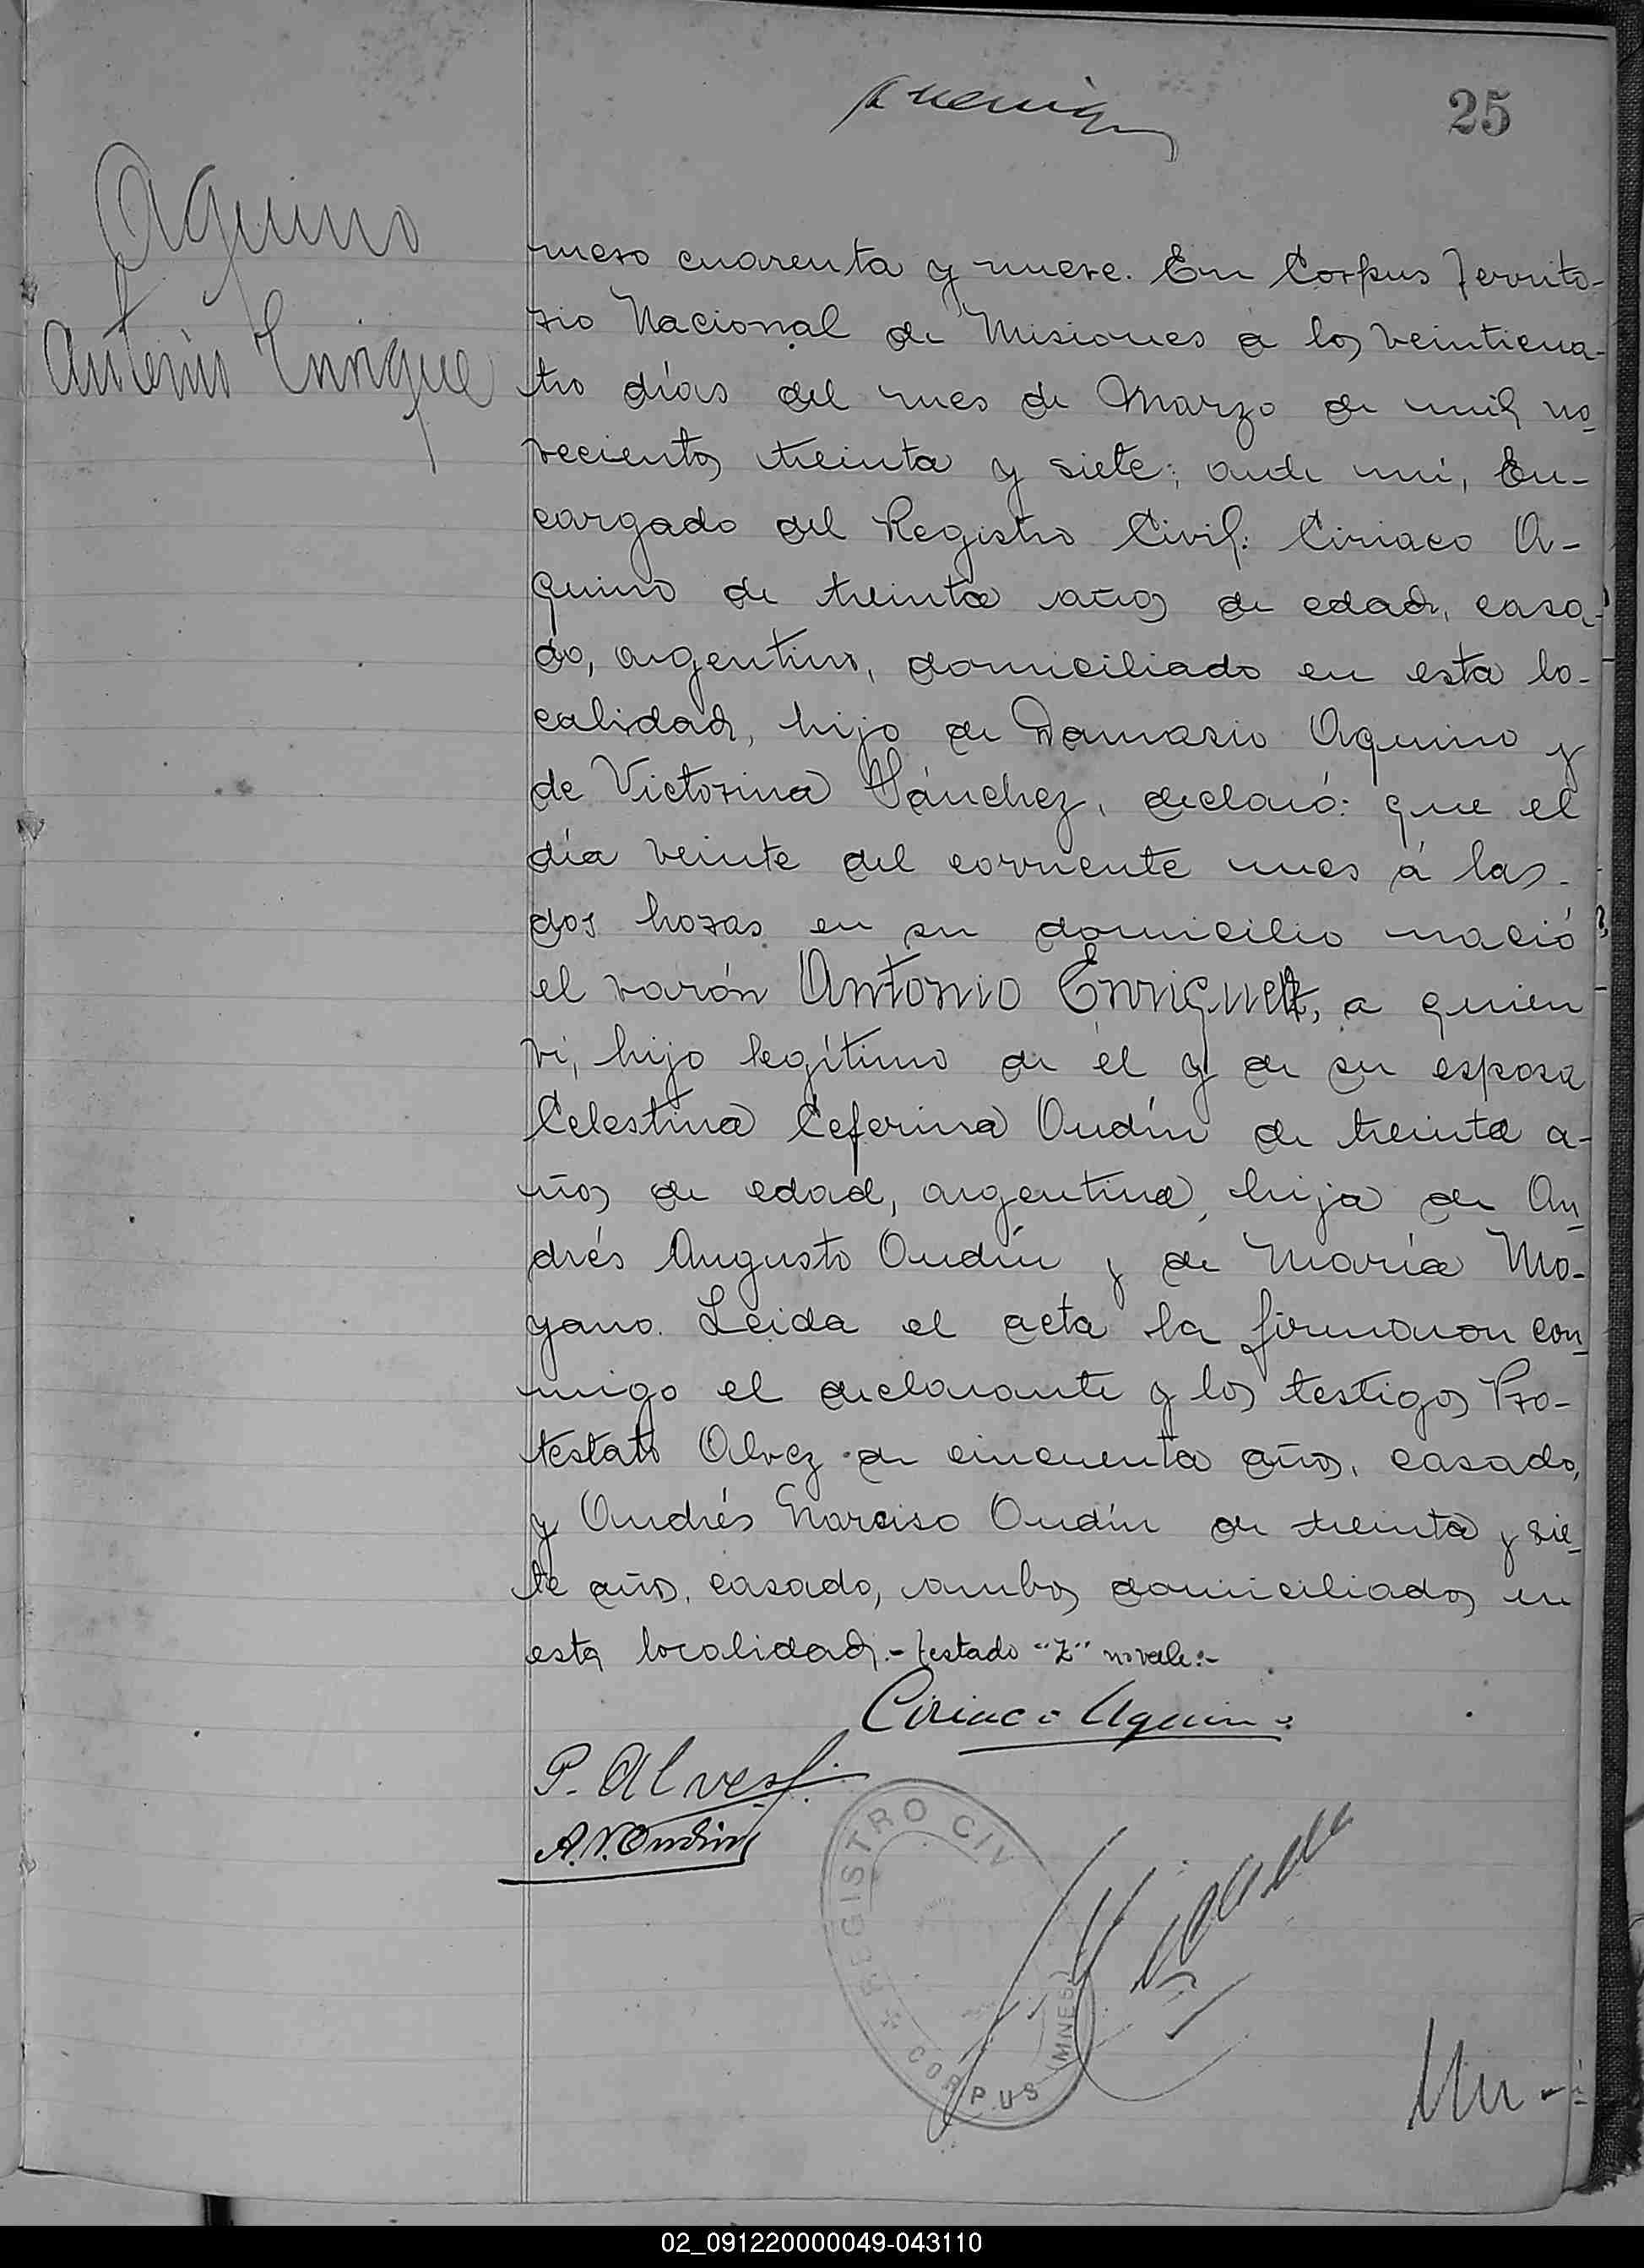 25
Aquino
Antonio Enrique
mero cuarenta y nueve. En Corpus Territo-
rio Nacional de Misiones a los veinticua-
tro días del mes de Marzo de mil no
vecientos treinta y siete; ante mí, En-
cargado del Registro Civil: Ciriaco A-
quino de treinta años de edad, casa-
do, argentino, domiciliado en esta lo-
calidad, hijo de Damasio Aquino y
de Victorina Sánchez, declaró: que el
día veinte del corriente mes á las-
dos horas en su domicilio nació
el varón Antonio Enriquez, a quien
vi, hijo legítimo de él y de su esposa
Celestina Ceferina Oudín de treinta a-
ños de edad, argentina, hija de An
drés Augusto Oudín y de María Mo-
yano. Leida el acta la firmaron con
migo el declarante y los testigos Pro-
testato Alvez de cincuenta años, casado,
y Andrés Narciso Oudín de treinta y sie
te años, casado, ambos domiciliados en
esta localidad.- Testado "Z" no vale:-
Ciriaco Aquino
P. Alvez
A. N. Oudin
REGISTRO CIV
CORPUS (MNES)
Nú-
02_091220000049-043110